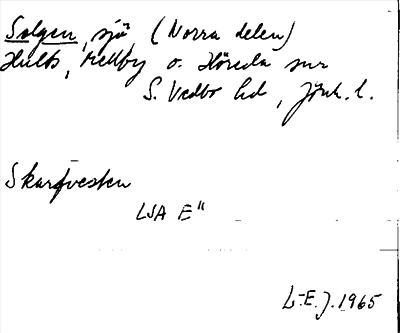 Solgen, sjö, (Norra delen)
Hults, Mellby o. Höreda snr
S. Vedbo hd, Jönk. l.
Skarfvesten
LSA E"
L-E.J. 1965